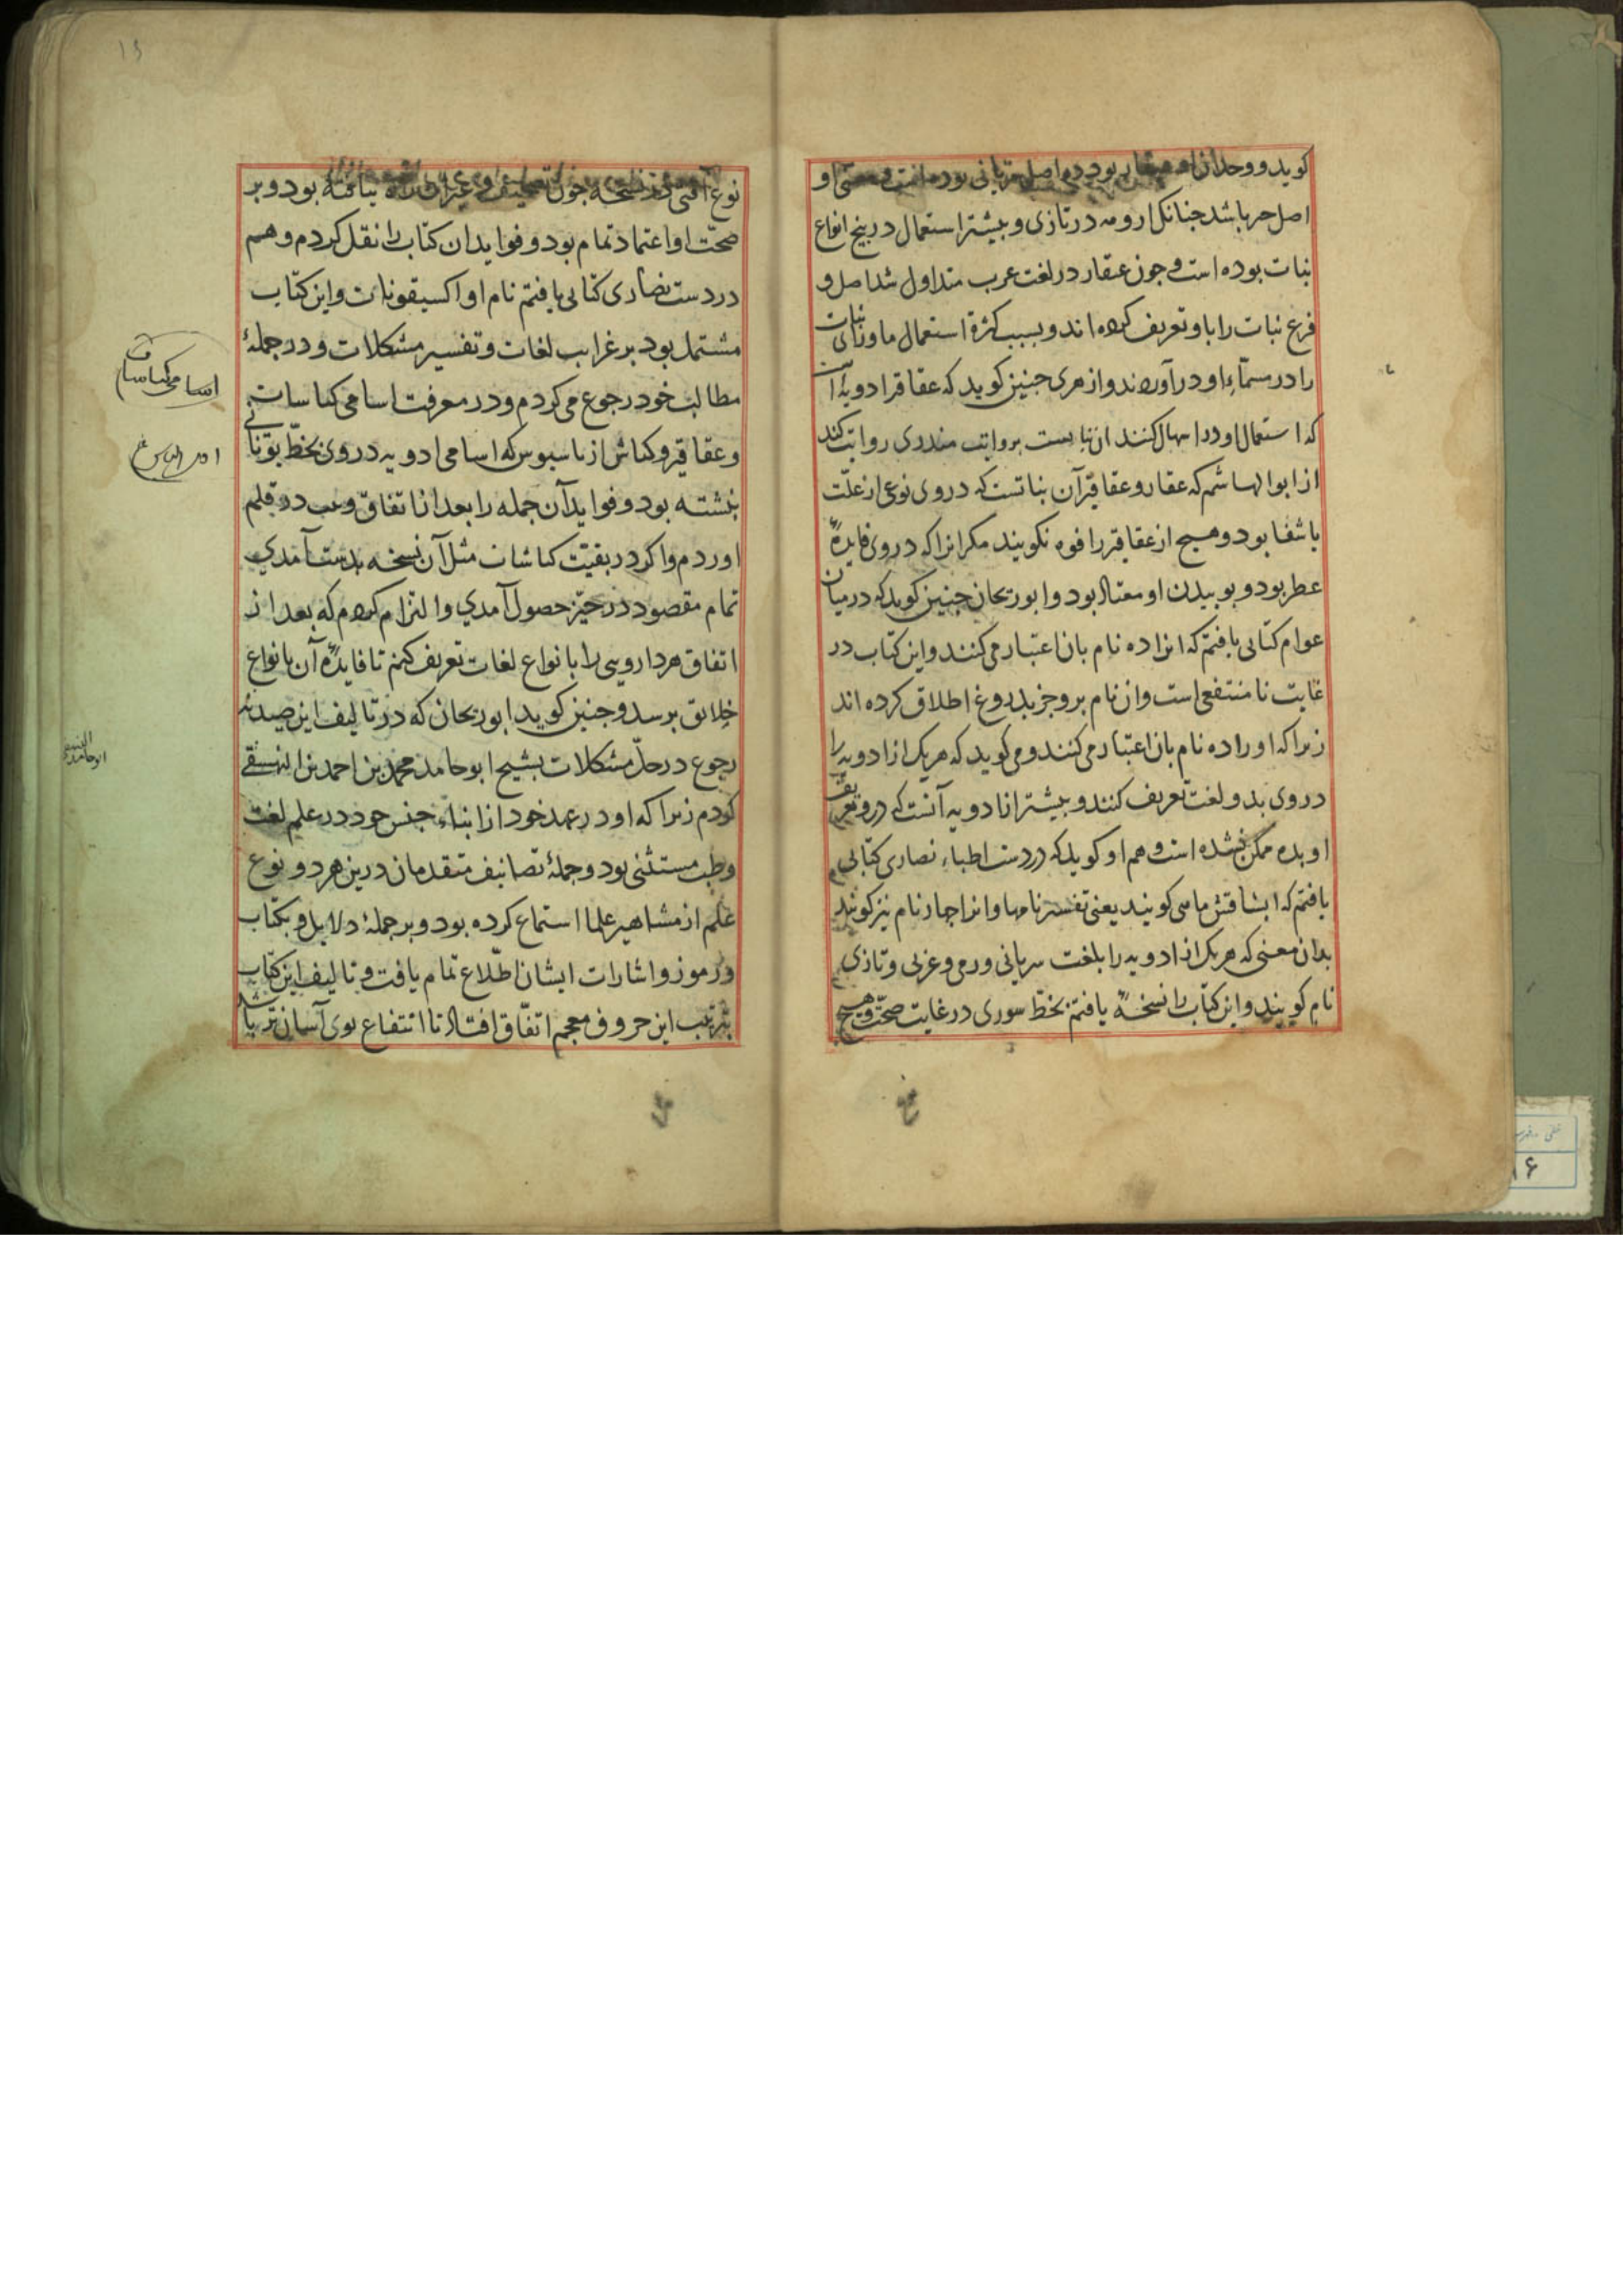 کوید و وحدان او عقار بود و ده اصل سریانی بوده است و معنی او
اصل حر باشد جنانک ارومه در تازی و بیشتر استعمال در بیخ انواع
نبات بوده است و جون عقار در لغت عرب متداول شد اصل و
فرع نبات را باو تعریف کرده اند و بسبب کثرة استعمال ماورای نبات
را در مسمّاء او در آورده اند و ازهری جنین کوید که عقاقیر ادویۀ است
که استعمال او در اسهال کنند ان نبا بست بروایت مندری روایت کند
از ابوالهاشم که عقار و عقاقیر آن نباتست که در وی نوعی از علّت
یا شفا بود و هیچ از عقاقیر را فوه نکویند مکر انرا که در وی فایدۀ
عطر بود و بوییدن او معتاد بود و ابوریحان جنین کوید که در میان
عوام کتابی یافتم که انرا ده نام بان اعتبار می کنند و این کتاب در
غایت نا منتفعی است و ان نام برو جز بدروغ اطلاق کرده اند
زیرا که او را ده نام بان اعتبار می کنند و می کوید که هر یک از ادویه را
در وی بده لغت تعریف کنند و بیشتر از ادویه آنست که در و تعریف
او بده ممکن نشده است و هم او کوید که در دست اطباء نصاری کتابی
یافتم که ابشاقشماهی کویند یعنی تفسیر نامها و انرا جهار نام نیز کویند
بدان معنی که هر یک از ادویه را بلغت سریانی و رومی و عربی و تازی
نام کویند و این کتاب را نسخۀ یافتم بخطّ سوری در غایت صحّت و هیچ
نوع آفتی در نسخه جون تصحیف و غیر ان راه نیافته بود و بر
صحّت او اعتماد تمام بود و فواید ان کتاب را نقل کردم و هم
در دست نصاری کتابی یافتم نام او اکسیقونات و این کتاب
مشتمل بود بر غرایب لغات و تفسیر مشکلات و در جملۀ
مطالب خود رجوع می کردم و در معرفت اسامی کناسات
و عقاقیر و کناش ازباسیوس که اسامی ادویه در وی بخطّ یونانی
نبشته بود و فواید آن جمله را بعد از اتفاق وعب در قلم
اوردم و اکر در بقیّت کناشات مثل آن نسخه بدست آمدی
تمام مقصود در حیّز حصول آمدی و التزام کردم که بعد از
اتفاق هر دارویی را بانواع لغات تعریف کنم تا فایدۀ آن بانواع
خلایق برسد و جنین کوید ابوریحان که در تالیف این صیدنه
رجوع در حلّ مشکلات بشیخ ابو حامد محمد بن احمد بن النهشقی
کردم زیرا که او در عهد خود از ابناء جنس خود در علم لغت
و طب مستثنی بود و جملۀ تصانیف متقدمان درین هر دو نوع
علم از مشاهیر علما استماع کرده بود و بر جملۀ دلایل و بکتاب
و رموز و اشارات ایشان اطّلاع تمام یافت و تالیف این کتاب
بترتیب این حروف معجم اتفاق افتاد تا انتفاع بوی آسان تر باشد
اسامی کناسات